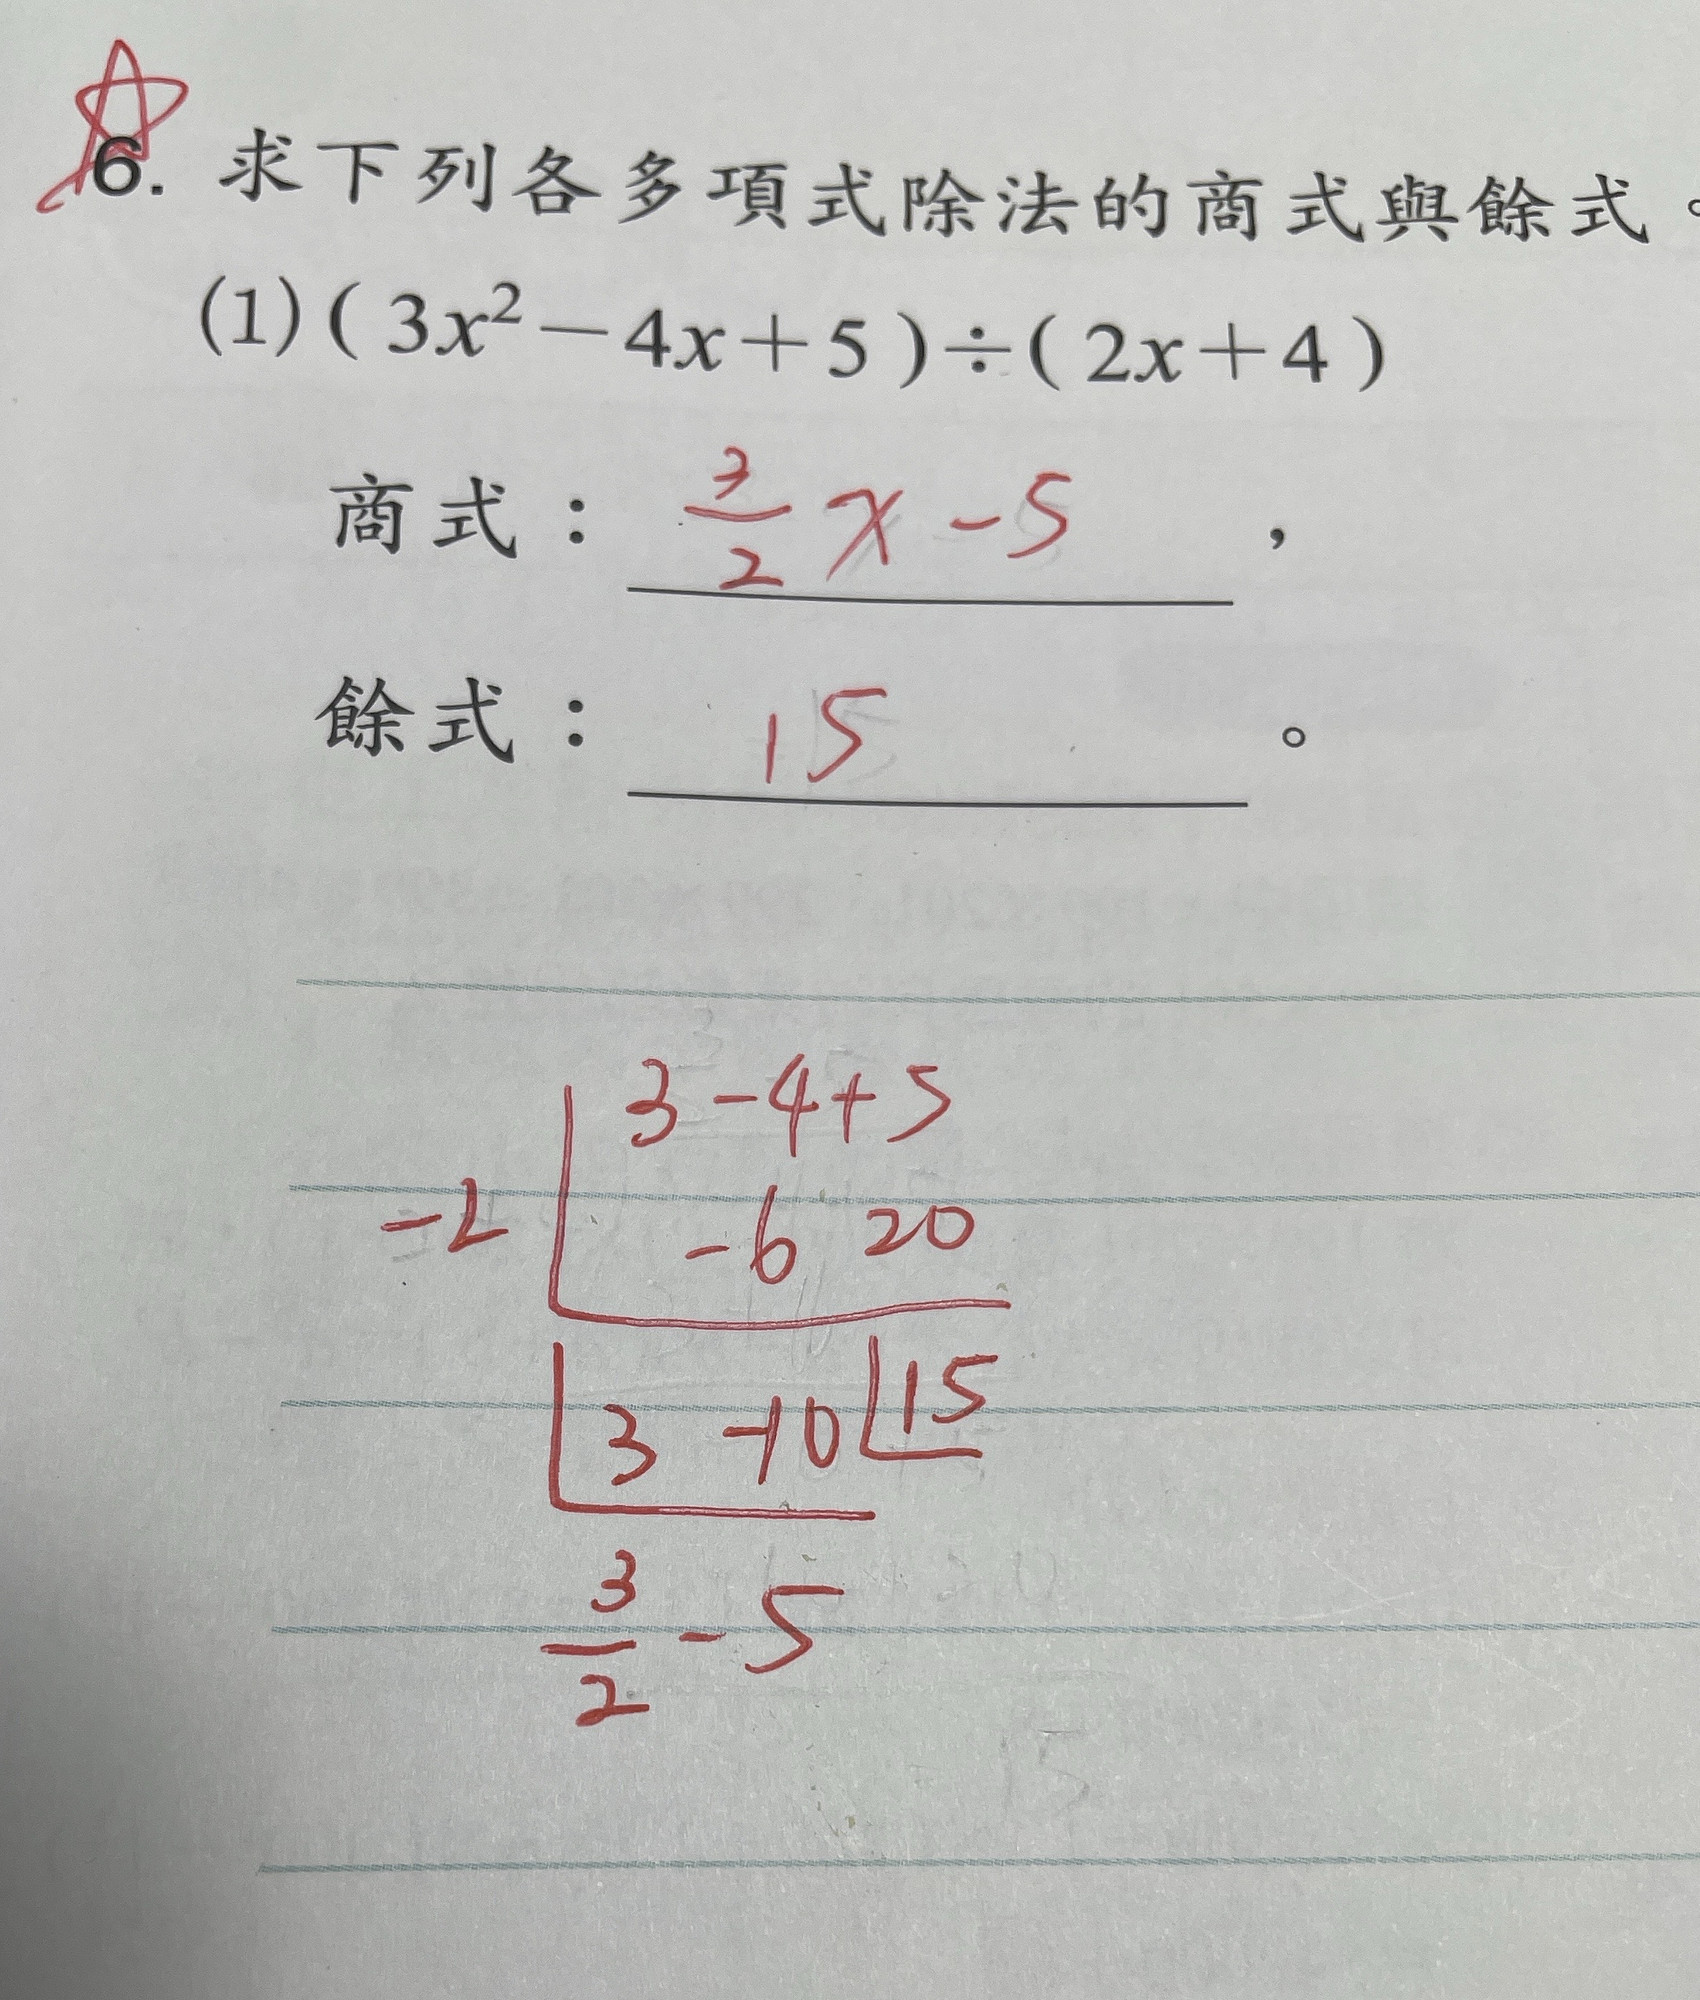 6. 求下列各多項式除法的商式與餘式。
(1) ( 3x²－4x＋5 )÷( 2x＋4 )
商式： 3/2 x - 5 ，
餘式： 15 。
3 - 4 + 5
-2 -6 20
3 -10 15
3/2 - 5